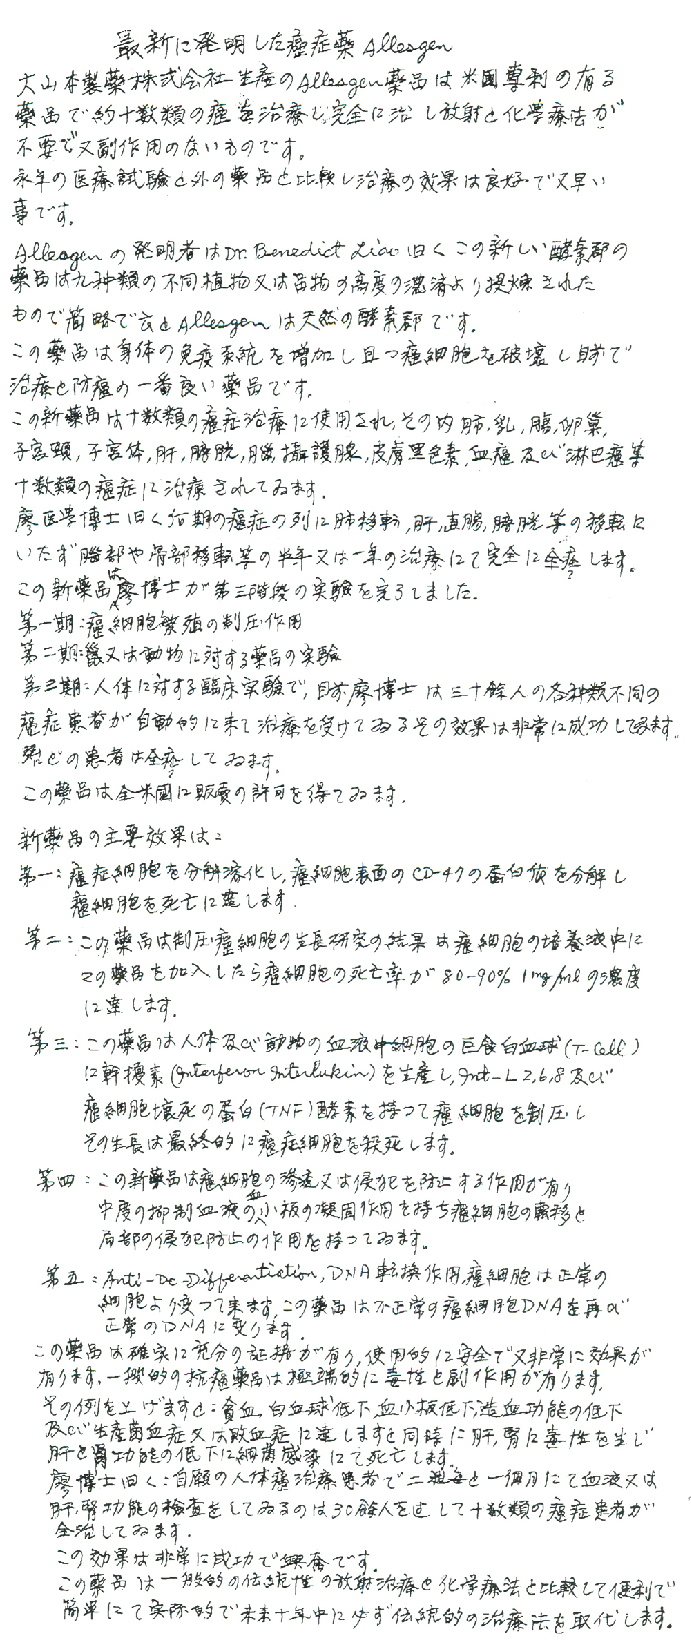 最新に発明した癌症薬 Allesgen
大山本製薬株式会社生産のAllesgen薬品は米国専利の有る
薬品で約十数類の癌症治療し完全に治し放射と化学療法が
不要で又副作用のないものです。
永年の医療試験と外の薬品と比較し治療の効果は良好で又早い
事です。
Allesgenの発明者はDr. Benedict Liao曰くこの新しい酵素群の
薬品は九種類の不同植物又は苗物の高度の濃済より提煉された
もので簡略で云とAllesgenは天然の酵素群です。
この薬品は身体の免疫系統を増加し且つ癌細胞を破壊し目前で
治療と防癌の一番良い薬品です。
この新薬品は十数類の癌症治療に使用され,その内肺,乳,腸,卵巣,
子宮頸,子宮体,肝,膀胱,腦,攝護腺,皮膚黒色素,血癌及び淋巴癌等
十数類の癌症に治療されてゐます。
廖医学博士曰く後期の癌症の列に肺移転,肝,直腸,膀胱等の移転に
いたず腦部や骨部移転等の半年又は一年の治療にて完全に全癒します。
この新薬品は廖博士が第三階段の実験を完了しました.
第一期:癌細胞繁殖の制圧作用
第二期:鼠又は動物に対する薬品の実験
第三期:人体に対する臨床実験で,目前廖博士は三十餘人の各種類不同の
癌症患者が自動的に来て治療を受けてゐるその效果は非常に成功してゐます.
殆どの患者は全癒してゐます。
この薬品は全米國に販売の許可を得てゐます.
新薬品の主要效果は:
第一:癌症細胞を分解溶化し,癌細胞表面のCD-47の蛋白質を分解し
癌細胞を死亡に達します.
第二:この薬品は制圧癌細胞の生長研究の結果は癌細胞の培養液中に
この薬品を加入したら癌細胞の死亡率が80-90% 1mg/mlの濃度
に達します。
第三:この薬品は人体及び動物の血液中細胞の巨食白血球(T-Cell)
に幹擾素(Interferon Interlukin)を生産し,Int-L2,6,8及び
癌細胞壊死の蛋白(TNF)酵素を持つて癌細胞を制圧し
その生長は最終的に癌症細胞を殺死します。
第四:この新薬品は癌細胞の滲透又は侵犯を防止する作用が有り
中度の抑制血液の血小板の凝固作用を持ち癌細胞の転移と
局部の侵犯防止の作用を持つてゐます。
第五:Anti-De Differentiation, DNA転換作用,癌細胞は正常の
細胞より変つて来ます,この薬品は不正常の癌細胞DNAを再び
正常のDNAに変ります.
この薬品は確実に充分の証拠が有り,使用的に安全で又非常に効果が
有ります.一般的の抗癌薬品は極端的に毒性と副作用が有ります.
その例を上げますと:貧血,白血球低下,血小板低下,造血功能の低下
及び生産菌血症又は敗血症に達しますと同時に肝,腎に毒性を生じ
肝と腎功能の低下に細菌感染にて死亡します.
廖博士曰く:自願の人体癌治療患者で二週毎と一個月にて血液又は
肝,腎功能の検査をしてゐるのは30餘人を通して十数類の癌症患者が
全治してゐます.
この効果は非常に成功で興奮です.
この薬品は一般的の伝統性の放射治療と化学療法と比較して便利で
簡単にて実際的で未来十年中に必ず伝統的の治療法を取代します。